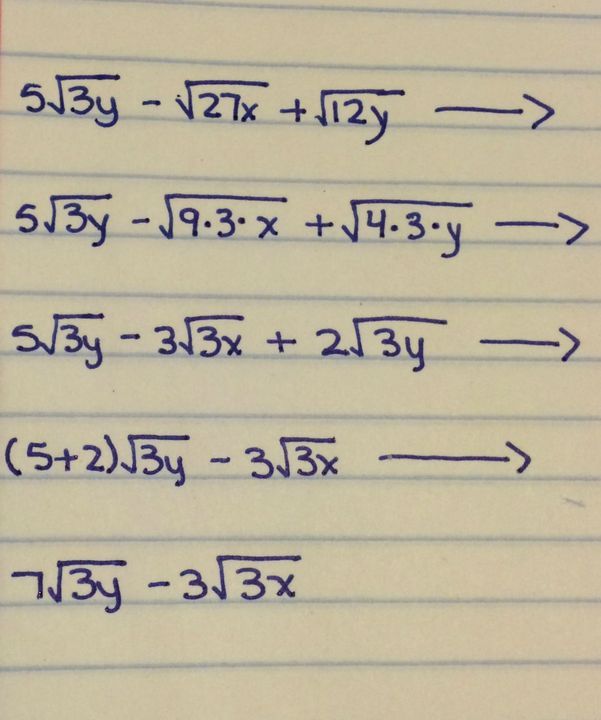 5√3y - √27x + √12y ⟶
5√3y - √9·3·x + √4·3·y ⟶
5√3y - 3√3x + 2√3y ⟶
(5+2)√3y - 3√3x ⟶
7√3y - 3√3x